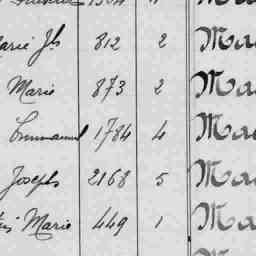 Marie Jh 812 2 Mac
Marie 873 2 Mac
Emmanuel 1784 4 Mac
Joseph 2168 5 Mac
Marie 449 1 Mac